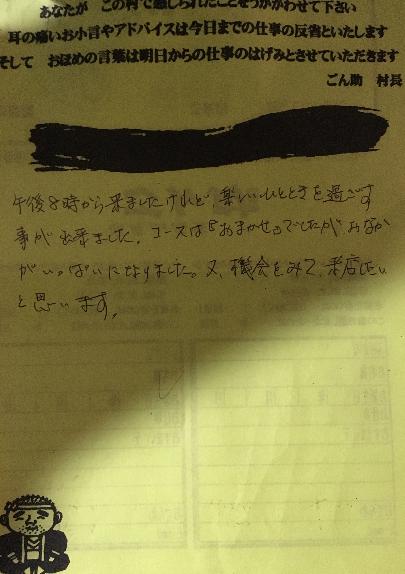 あなたが この村で感じられたことをうかがわせて下さい
耳の痛いお小言やアドバイスは今日までの仕事の反省といたします
そして おほめの言葉は明日からの仕事のはげみとさせていただきます
ごん助 村長
午後8時から来ましたけれど、楽しいひとときを過ごす
事が出来ました。コースは『おまかせ』でしたが、おなか
がいっぱいになりました。又、機会をみて、来店したい
と思います。